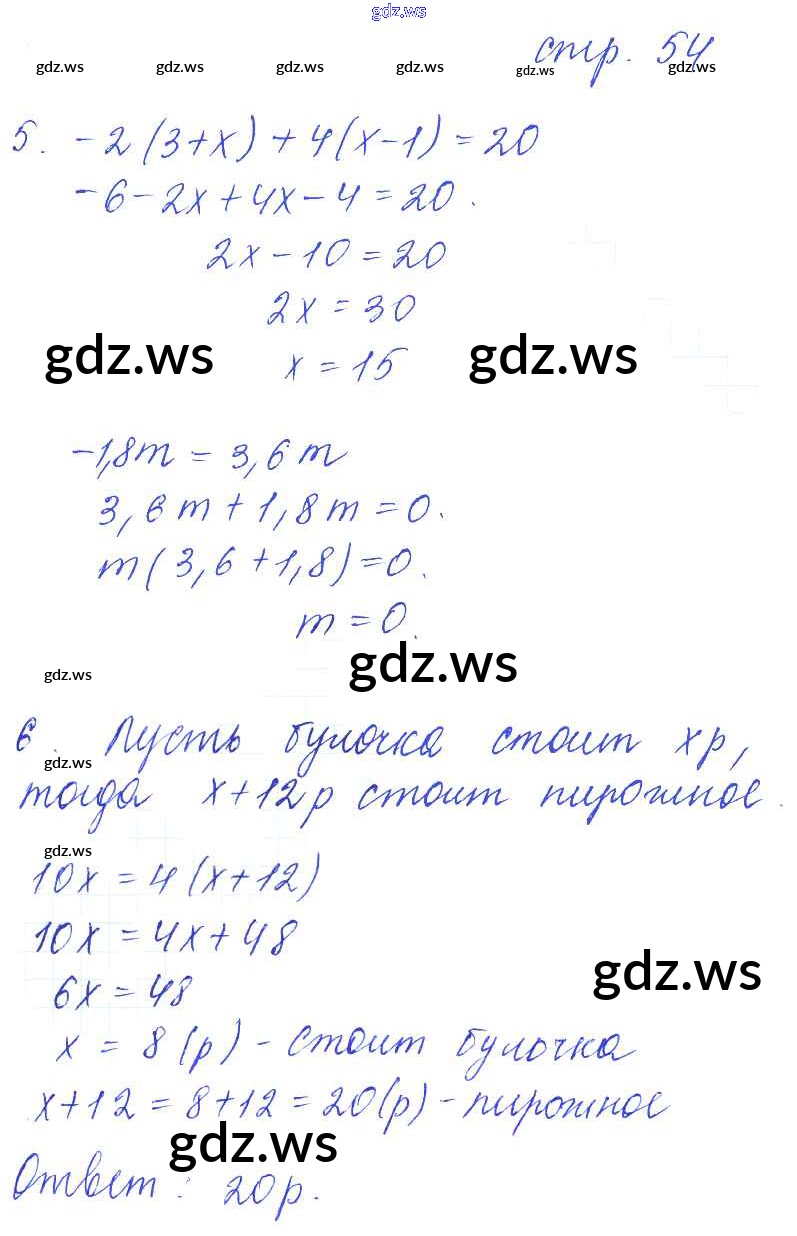 gdz.ws
стр. 54
gdz.ws gdz.ws gdz.ws gdz.ws gdz.ws gdz.ws
5. -2(3+x)+4(x-1)=20
-6-2x+4x-4=20.
2x-10=20
2x=30
gdz.ws gdz.ws
x=15
-1,8m=3,6m
3,6m+1,8m=0.
m(3,6+1,8)=0.
m=0.
gdz.ws
gdz.ws
6. Пусть булочка стоит xр,
gdz.ws
тогда x+12р стоит пирожное.
gdz.ws
10x=4(x+12)
10x=4x+48
gdz.ws
6x=48
x=8(р)-стоит булочка
x+12=8+12=20(р)-пирожное
gdz.ws
Ответ: 20р.